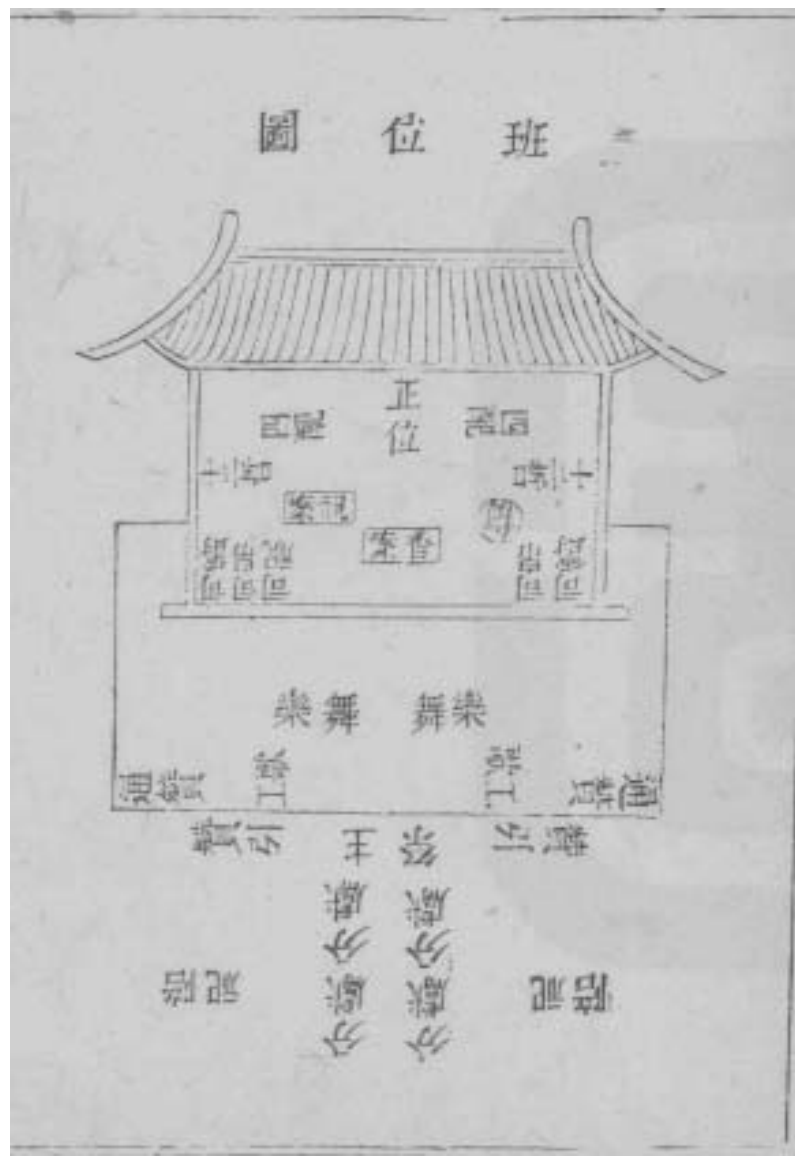 班位圖
正位
四配
四配
十二哲
十二哲
祝案
香案
司爵
司帛
司祝
司帛
司爵
樂舞
舞樂
通贊
歌工
歌工
通贊
引贊
主祭
引贊
分獻
分獻
分獻
分獻
陪祀
陪祀